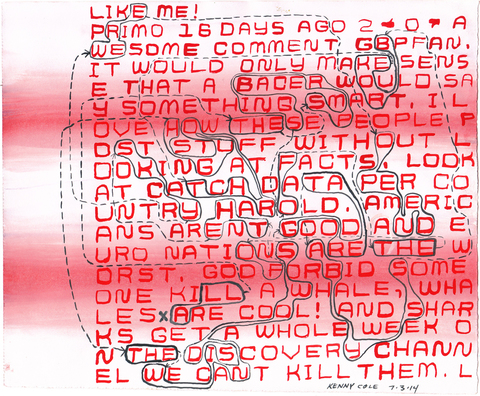 LIKE ME!
PRIMO 16 DAYS AGO 2 0 A
WESOME COMMENT GBPFAN.
IT WOULD ONLY MAKE SENS
E THAT A BACER WOULD SA
Y SOMETHING SMART, I L
OVE HOW THESE PEOPLE P
OST STUFF WITHOUT L
OOKING AT FACTS, LOOK
AT CATCH DATA PER CO
UNTRY HAROLD. AMERIC
ANS ARENT GOOD AND E
URO NATIONS ARE THE W
ORST, GOD FORBID SOME
ONE KILL A WHALE, WHA
LES ARE COOL! AND SHAR
KS GET A WHOLE WEEK O
N THE DISCOVERY CHANN
EL WE CANT KILL THEM. L
KENNY COLE 7.3.14